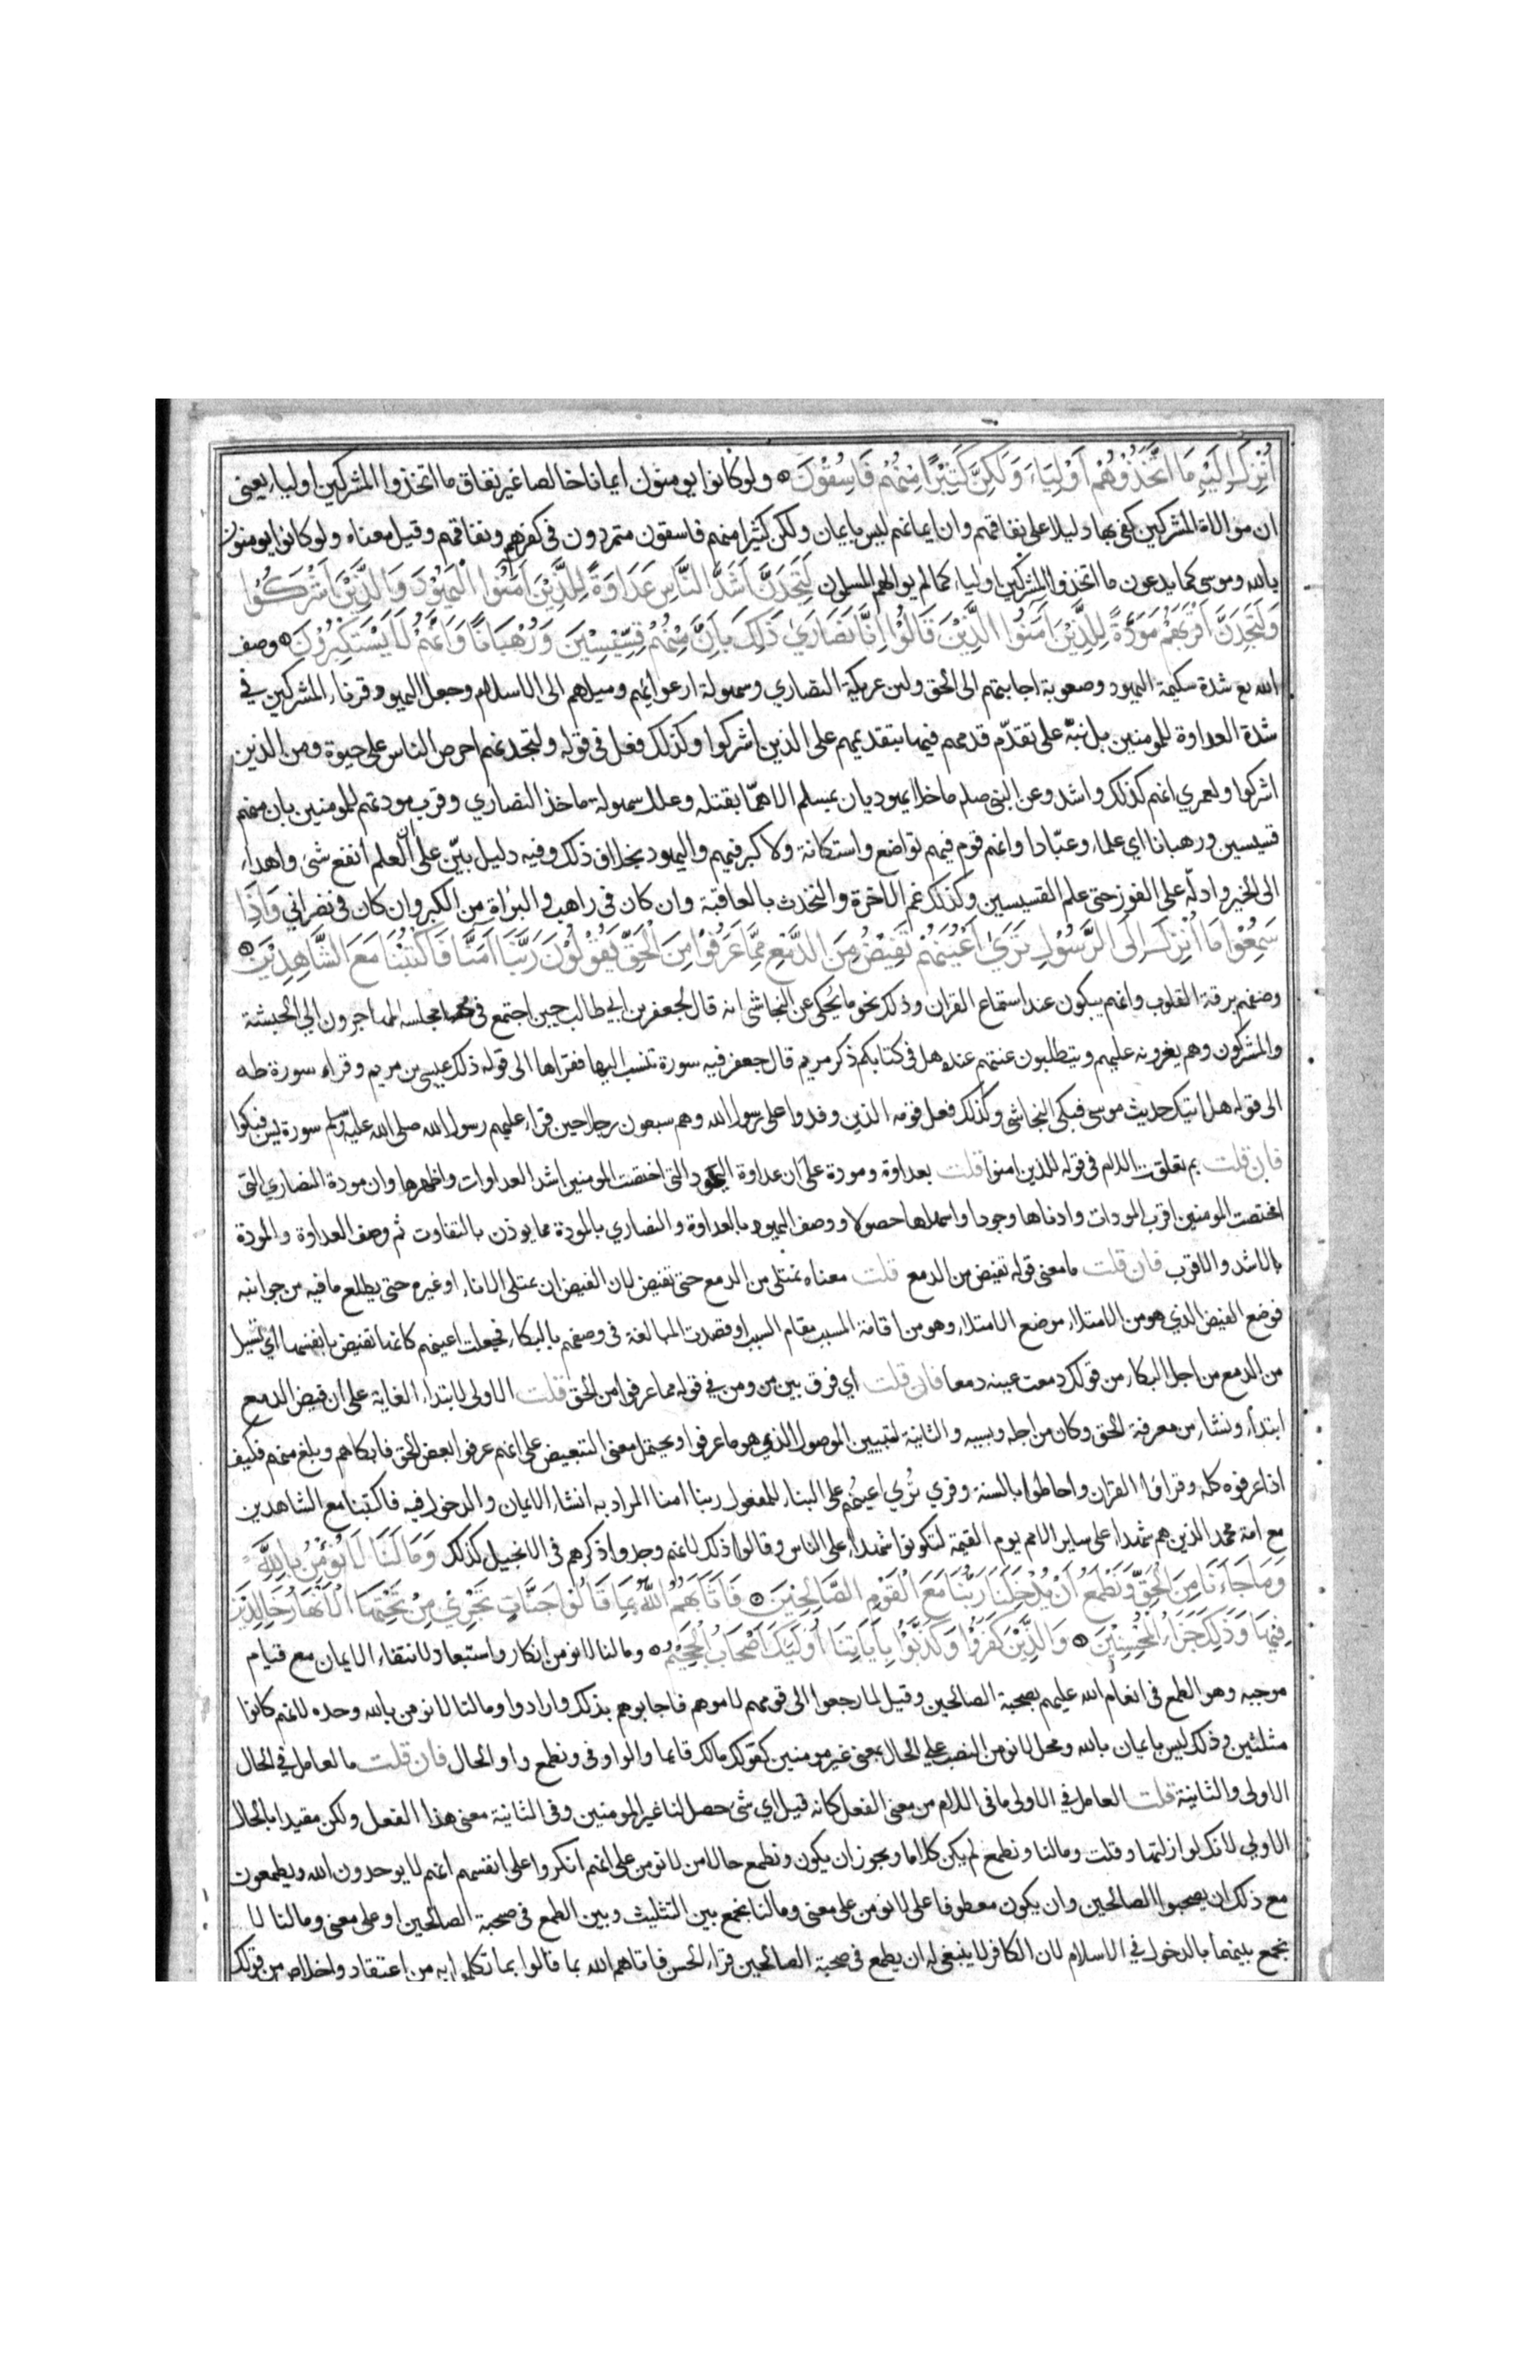 اُنْزِلَ اِلَيْهِ مَا اتَّخَذُوْهُمْ اَوْلِيَاءَ وَلَكِنَّ كَثِيْرًا مِنْهُمْ فَاسِقُوْنَ ولو كانوا يومنون ايمانا خالصا غير نفاق ما اتخذوا المشركين اولياء يعني
ان موالاة المشركين كفى بها دليلا على نفاقهم وان ايمانهم ليس بايمان ولكن كثيرا منهم فاسقون متمردون في كفرهم ونفاقهم وقيل معناه ولو كانوا يومنون
بالله وموسى كما يدعون ما اتخذوا المشركين اولياء كما لم يوالهم المسلمون لَتَجِدَنَّ اَشَدَّ النَّاسِ عَدَاوَةً لِلَّذِيْنَ اٰمَنُوا الْيَهُوْدَ وَالَّذِيْنَ اَشْرَكُوْا
وَلَتَجِدَنَّ اَقْرَبَهُمْ مَوَدَّةً لِلَّذِيْنَ اٰمَنُوا الَّذِيْنَ قَالُوْا اِنَّا نَصَارَىٰ ذَلِكَ بِاَنَّ مِنْهُمْ قِسِّيْسِيْنَ وَرُهْبَانًا وَاَنَّهُمْ لَا يَسْتَكْبِرُوْنَ وصف
الله تع شدة سكيمة اليهود وصعوبة اجابتهم الى الحق ولين عريكة النصاري وسهولة ارعوائهم وميلهم الى الاسلام وجعل اليهود قرناء المشركين في
شدة العداوة للمومنين بل نبّه على تقدّم قدمهم فيها بتقديمهم على الذين اشركوا وكذلك فعل في قوله ولتجدنهم احرص الناس على حيوة ومن الذين
اشركوا ولعمري انهم كذلك واشد وعن النبي صلم ما خلا يهوديان بمسلم الا همّا بقتله وعلل سهولة ماخذ النصاري وقرب مودتهم للمومنين بان منهم
قسيسين ورهبانا اي علماء وعبّادا وانهم قوم فيهم تواضع واستكانة ولا كبر فيهم واليهود بخلاف ذلك وفيه دليل بيّن على ان العلم انفع شئ واهداه
الى الخير وادلّه على الفوز حتى علم القسيسين وكذلك غم الاخرة والتحدث بالعاقبة وان كان في راهب والبراة من الكبر وان كان في نصراني وَاِذَا
سَمِعُوْا مَا اُنْزِلَ اِلَى الرَّسُوْلِ تَرَىٰ اَعْيُنَهُمْ تَفِيْضُ مِنَ الدَّمْعِ مِمَّا عَرَفُوْا مِنَ الْحَقِّ يَقُوْلُوْنَ رَبَّنَا اٰمَنَّا فَاكْتُبْنَا مَعَ الشَّاهِدِيْنَ
وصفهم برقة القلوب وانهم يبكون عند استماع القران وذلك نحو ما يُحكى عن النجاشي انه قال لجعفر بن ابي طالب حين اجتمع في مجلسه المهاجرون الي الحبشة
والمشركون وهم يغرونه عليهم ويتطلبون عنتهم عنده هل في كتابكم ذكر مريم قال جعفر فيه سورة تنسب اليها فقراها الى قوله ذلك عيسى بن مريم وقراء سورة طه
الى قوله هل اتيك حديث موسى فبكى النجاشي وكذلك فعل قومه الذين وفدوا على رسول الله وهم سبعون رجلا حين قراء عليهم رسول الله صلى الله عليه وسلم سورة يس فبكوا
فان قلت بم تعلق اللام في قوله للذين امنوا قلت بعداوة ومودة على ان عداوة اليهود التي اختصت المومنين اشد العداوات واظهرها وان مودة النصاري التي
اختصت المومنين اقرب المودات وادناها وجودا واسهلها حصولا ووصف اليهود بالعداوة والنصاري بالمودة مما يوذن بالتفاوت ثم وصف العداوة والمودة
بالاشد والاقرب فان قلت ما معنى قوله تفيض من الدمع قلت معناه تمتلى من الدمع حتى تفيض لان الفيض ان يمتلى الاناء او غيره حتى يطلع ما فيه من جوانبه
فوضع الفيض الذي هو من الامتلاء موضع الامتلاء وهو من اقامة المسبب مقام السبب او قصدت المبالغة في وصفهم بالبكاء فجعلت اعينهم كانها تفيض بانفسها اي تسيل
من الدمع من اجل البكاء من قولك دمعت عينه دمعا فان قلت اي فرق بين من ومن في قوله مما عرفوا من الحق قلت الاولى لابتداء الغاية على ان فيض الدمع
ابتداء ونشاء من معرفة الحق وكان من اجله وبسببه والثانية لتبيين الموصول الذي هو ما عرفوا ويحتمل معنى التبعيض على انهم عرفوا بعض الحق فابكاهم وبلغ منهم فكيف
اذا عرفوه كله وقراوا القران واحاطوا بالسنة وقري تُرى اعينُهم على البناء للمفعول ربنا امنا المراد به انشاء الايمان والدخول فيه فاكتبنا مع الشاهدين
مع امة محمد الذين هم شهداء على ساير الامم يوم القيمة لتكونوا شهداء على الناس وقالوا ذلك لانهم وجدوا ذكرهم في الانجيل كذلك وَمَا لَنَا لَا نُؤْمِنُ بِاللّٰهِ
وَمَا جَاءَنَا مِنَ الْحَقِّ وَنَطْمَعُ اَنْ يُدْخِلَنَا رَبُّنَا مَعَ الْقَوْمِ الصَّالِحِيْنَ فَاَثَابَهُمُ اللّٰهُ بِمَا قَالُوْا جَنَّاتٍ تَجْرِيْ مِنْ تَحْتِهَا الْاَنْهَارُ خَالِدِيْنَ
فِيْهَا وَذَلِكَ جَزَاءُ الْمُحْسِنِيْنَ وَالَّذِيْنَ كَفَرُوْا وَكَذَّبُوْا بِاٰيَاتِنَا اُولَٰئِكَ اَصْحَابُ الْجَحِيْمِ وما لنا لا نومن انكار واستبعاد لانتفاء الايمان مع قيام
موجبه وهو الطمع في انعام الله عليهم بصحبة الصالحين وقيل لما رجعوا الى قومهم لاموهم فاجابوهم بذلك وارادوا وما لنا لا نومن بالله وحده لانهم كانوا
مثلثين وذلك ليس بايمان بالله ومحل لا نومن النصب علي الحال بمعنى غير مومنين كقولك مالك قائما والواو في ونطمع واو الحال فان قلت ما العامل في الحال
الاولى والثانية قلت العامل في الاولى ما في اللام من معنى الفعل كانه قيل اي شئ حصل لنا غير المومنين وفي الثانية معنى هذا الفعل ولكن مقيدا بالحال
الاولى لانك لو ازلتها وقلت وما لنا ونطمع لم يكن كلاما ويجوز ان يكون ونطمع حالا من لا نومن على انهم انكروا على انفسهم انهم لا يوحدون الله ويطمعون
مع ذلك ان يصحبوا الصالحين وان يكون معطوفا على لا نومن على معنى وما لنا نجمع بين التثليث وبين الطمع في صحبة الصالحين او على معنى وما لنا لا
نجمع بينهما بالدخول في الاسلام لان الكافر لا ينبغي له ان يطمع في صحبة الصالحين قراء الحسن فاتاهم الله بما قالوا بما تكلموا به من اعتقاد واخلاص من قولك